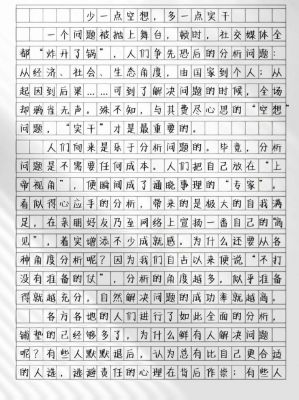 少一点空想，多一点实干
一个问题被抛上舞台，顿时，社交媒体全
都“炸开了锅”，人们争先恐后的分析问题：
从经济、社会、生态角度，由国家到个人；从
起因到后果……可到了解决问题的时候，全场
却鸦雀无声。殊不知，与其费尽心思的“空想”
问题，“实干”才是最重要的。
人们向来是乐于分析问题的。毕竟，分析
问题是不需要任何成本。人们把自己放在“上
帝视角”，便瞬间成了通晓事理的“专家”。
看似得心应手的分析，带来的是极大的自我满
足，在亲朋好友乃至网络上宣扬一番自己的“高
见”，着实增添不少成就感。为什么还要从各
种角度分析呢？因为我们自古以来便说“不打
没有准备的仗”，分析的角度越多，似乎准备
得就越充分，自然解决问题的成功率就越高。
各方各地的人们进行了如此全面的分析，
铺垫的已经够多了，为什么鲜有人解决问题
呢？有些人默默退后，认为总有比自己更合适
的人选，逃避责任的心理在背后作祟；有些人